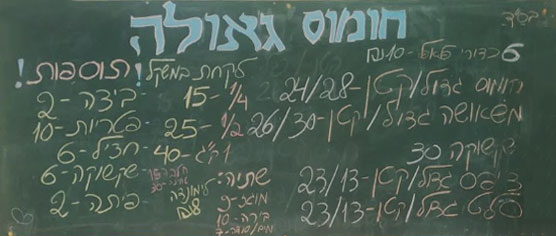 בס"ד
חומוס גאולה
6 כדורי פלאפל -10 ₪
חומוס גדול/קטן-24/28
משאושה גדול/קטן-26/30
שקשוקה 30
צ'יפס גדול/קטן-23/13
סלט גדול/קטן-23/13
לקחת במשקל
1/4 -15
1/2 -25
1 ק"ג -40
שתיה:
מואג-9
בירה-10
לימונדה
8 ₪
תוספות!
ביצה-2
פטריות-10
חציל-6
שקשוקה-6
פיתה-2